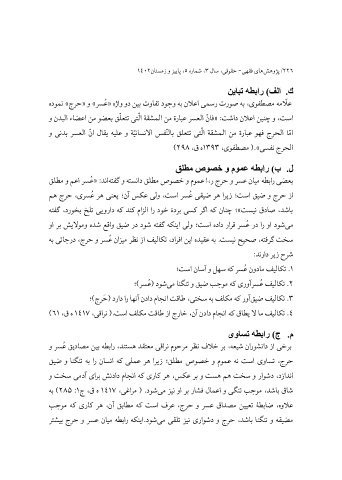 ۲۲۶/ پژوهش‌های فقهی- حقوقی، سال ۳، شماره ۵، پاییز و زمستان۱۴۰۲
ك. الف) رابطه تباین
علّامه مصطفوی، به صورت رسمی اعلان به وجود تفاوت بین دو واژه «عُسر» و «حرج» نموده
است، و چنین اعلان داشت: «فانّ العسر عبارة من المشقة الّتی تتعلّق بعضو من اعضاء البدن و
امّا الحرج فهو عبارة من المشقة الّتی تتعلق بالنّفس الانسانیّة و علیه یقال انّ العسر بدنی و
الحرج نفسی».( مصطفوی، ۱۳۹۳ه ق، ۲۹۸)
ل. ب) رابطه عموم و خصوص مطلق
بعضی رابطه میان عسر و حرج را؛ عموم و خصوص مطلق دانسته و گفته‌اند: «عُسر اعم و مطلق
از حرج و ضیق است؛ زیرا هر ضیقی عُسر است، ولی عکس آن؛ یعنی هر عُسری، حرج هم
باشد، صادق نیست»؛ چنان که اگر کسی بردة خود را الزام کند که دارویی تلخ بخورد، گفته
می‌شود او را در عُسر قرار داده است؛ ولی اینکه گفته شود در ضیق واقع شده ومولایش بر او
سخت گرفته، صحیح نیست. به عقیده این افراد، تکالیف از نظر میزان عُسر و حرج، درجاتی به
شرح زیر دارند:
۱. تکالیف مادون عُسر که سهل و آسان است؛
۲. تکالیف عُسرآوری که موجب ضیق و تنگنا می‌شود (عُسر)؛
۳. تکالیف ضیق‌آور که مکلف به سختی، طاقت انجام دادن آنها را دارد (حرج)؛
۴. تکالیف ما لا یطاق که انجام دادن آن، خارج از طاقت مکلف است.( نراقی، ۱۴۱۷ ه ق، ۶۱)
م. ج) رابطه تساوی
برخی از دانشوران شیعه، بر خلاف نظر مرحوم نراقی معتقد هستند، رابطه بین مصادیق عُسر و
حرج، تساوی است نه عموم و خصوص مطلق؛ زیرا هر عملی که انسان را به تنگنا و ضیق
اندازد، دشوار و سخت هم هست و بر عکس، هر کاری که انجام دادنش برای آدمی سخت و
شاق باشد، موجب تنگی و اعمال فشار بر او نیز می‌شود. ( مراغی، ۱۴۱۷ ه ق، ج۱: ۲۸۵) به
علاوه، ضابطۀ تعیین مصداق عسر و حرج، عرف است که مطابق آن، هر کاری که موجب
مضیقه و تنگنا باشد، حرج و دشواری نیز تلقی می‌شود.اینکه رابطه میان عسر و حرج بیشتر